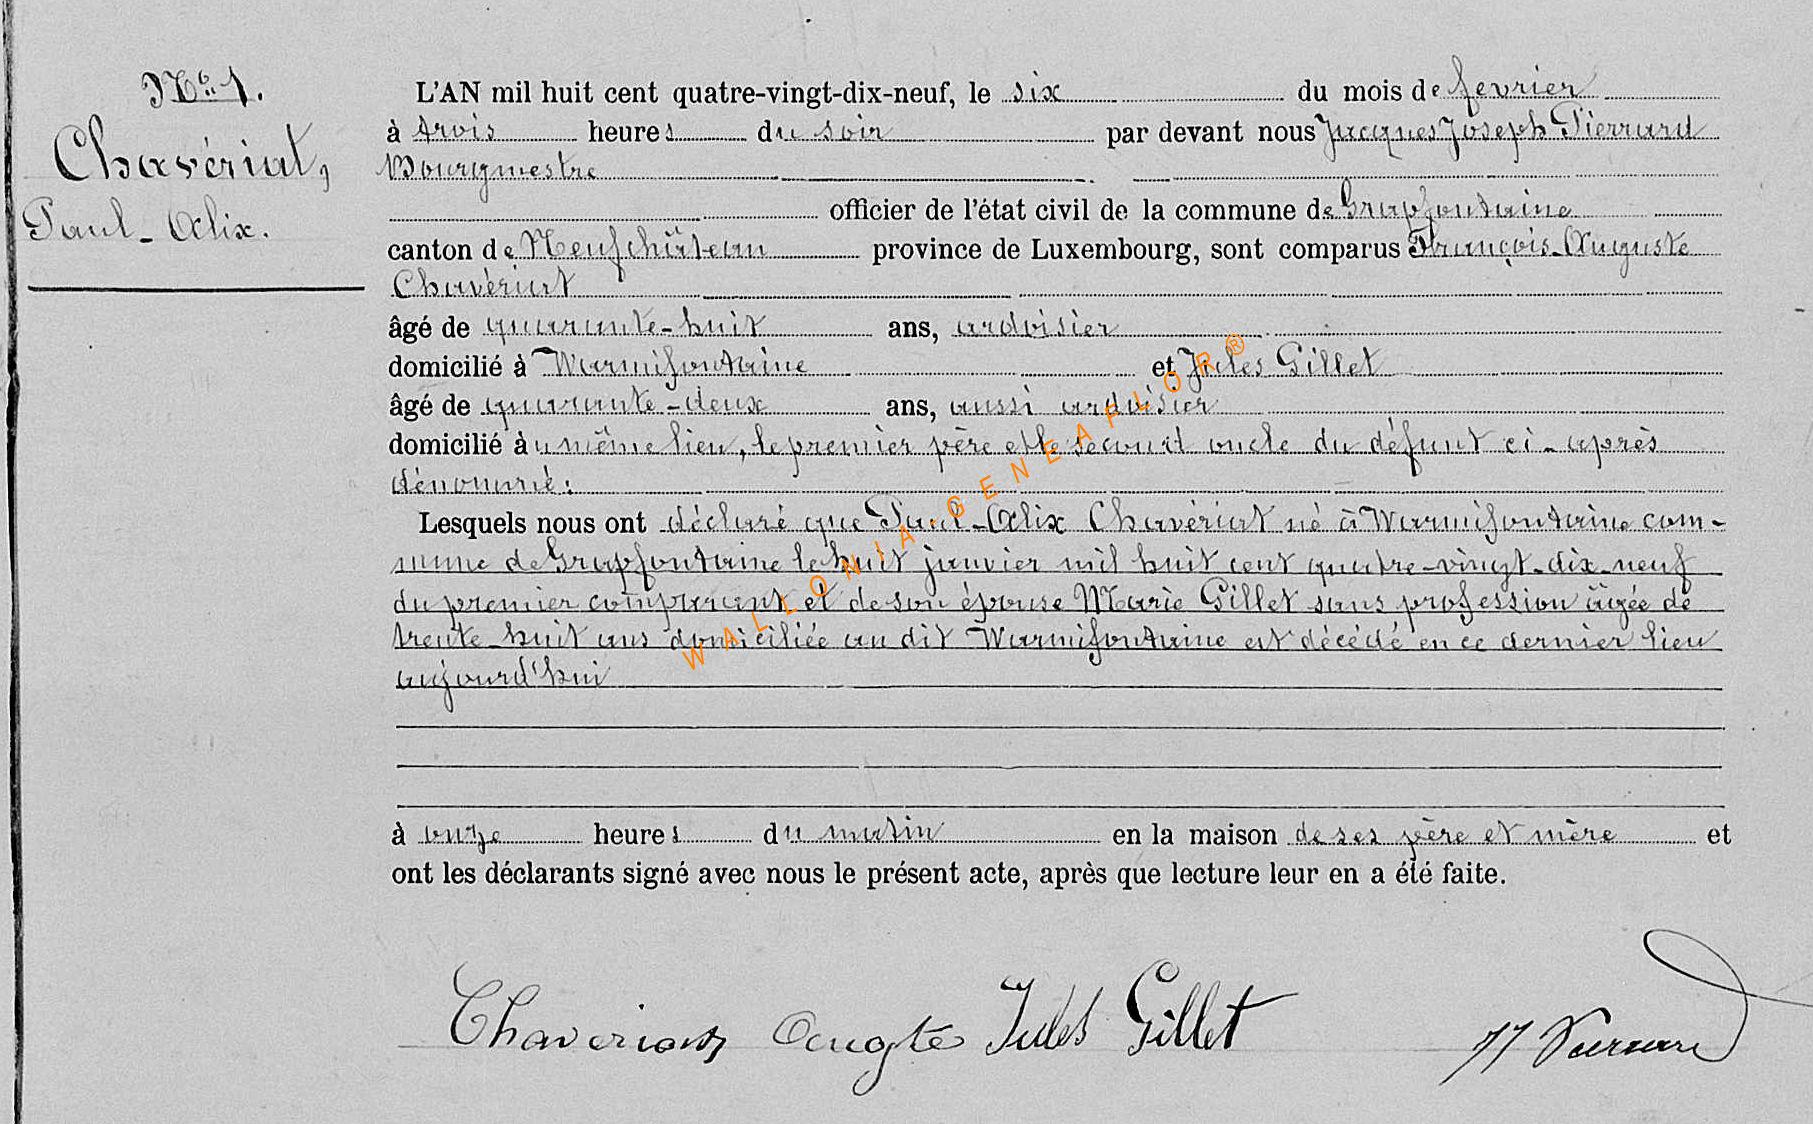 No. 1.
Chavériat,
Paul-Alix.
L'AN mil huit cent quatre-vingt-dix-neuf, le six du mois de fevrier
à trois heures du soir par devant nous Jacques Joseph Pierrard
Bourgmestre
officier de l'état civil de la commune de Grapfontaine
canton de Neufchâteau province de Luxembourg, sont comparus François-Auguste
Chavériat
âgé de quarante-huit ans, ardoisier
domicilié à Warmifontaine et Jules Gillet
âgé de quarante-deux ans, aussi ardoisier
domicilié au même lieu, le premier père et le second oncle du défunt ci-après
dénommé:
Lesquels nous ont déclaré que Paul-Alix Chavériat né à Warmifontaine com-
mune de Grapfontaine le huit janvier mil huit cent quatre-vingt-dix-neuf
du premier comparant et de son épouse Marie Gillet sans profession âgée de
trente-huit ans domiciliée au dit Warmifontaine est décédé en ce dernier lieu
aujourd'hui
à onze heures du matin en la maison de ses père et mère et
ont les déclarants signé avec nous le présent acte, après que lecture leur en a été faite.
Chaveriat Augte Jules Gillet JJ Pierrard
WALLONIA.GENEAFLOR®